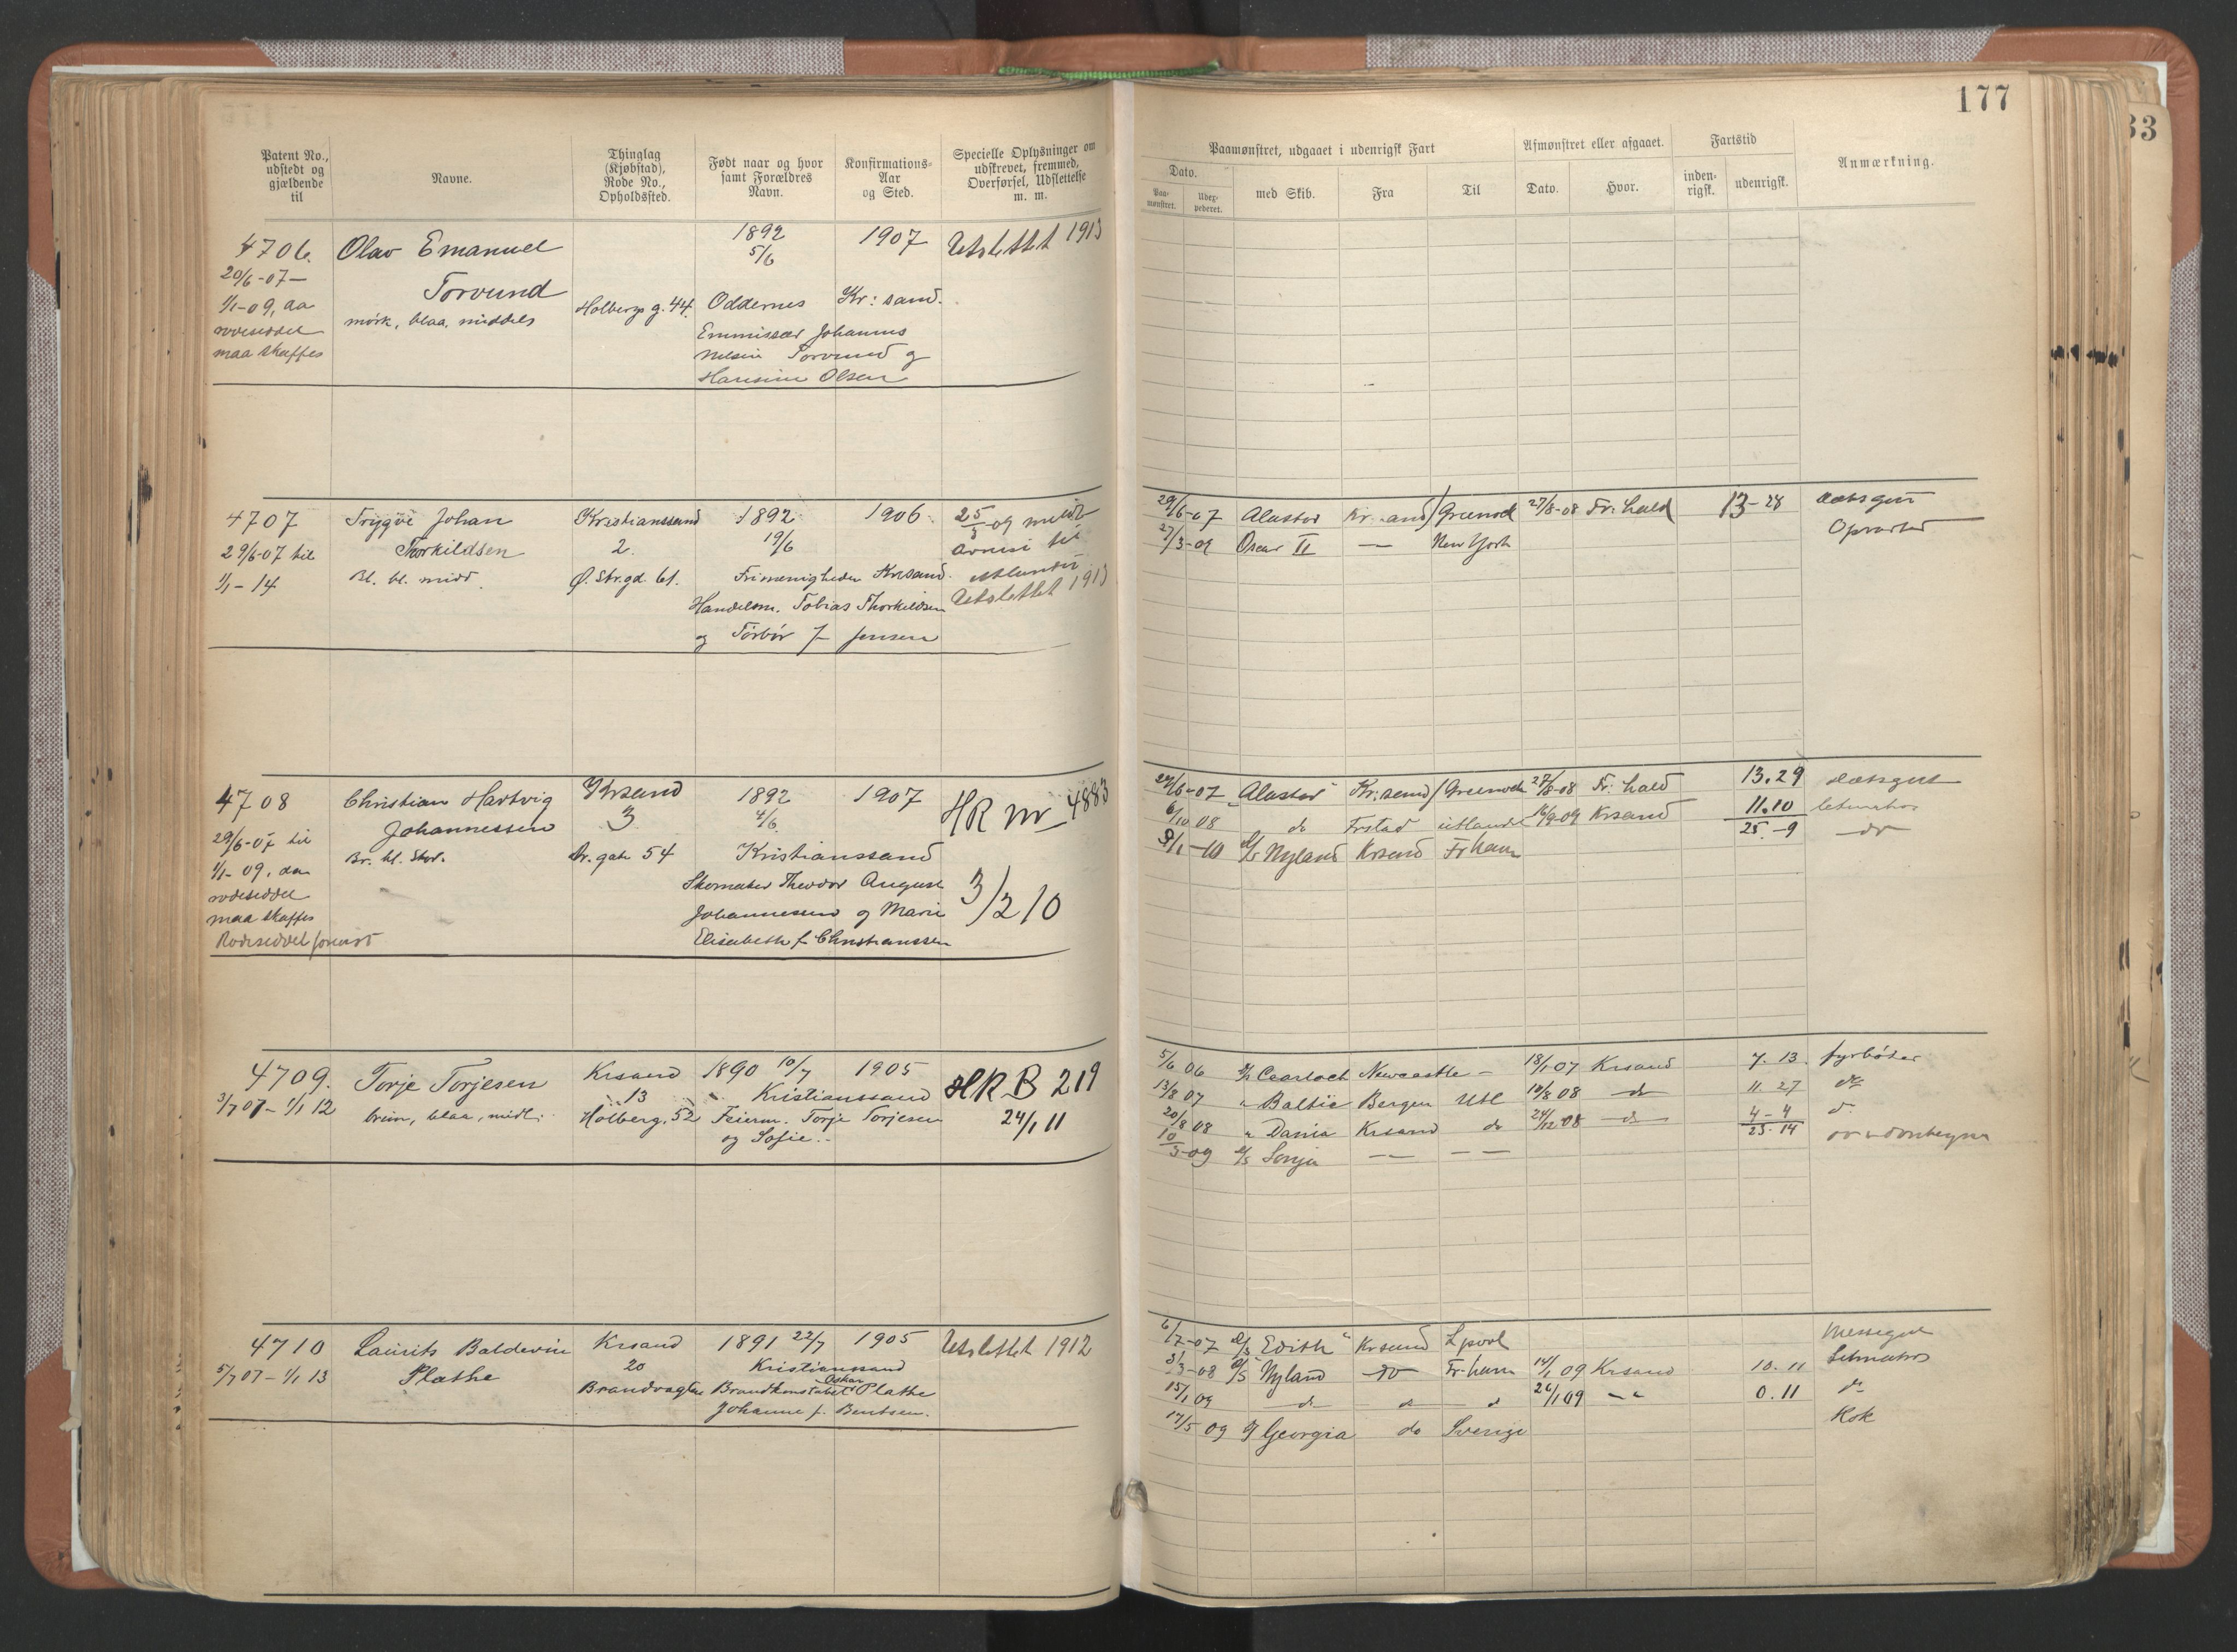 177
33
Patent No., udstedt og gjældende til
Navne.
Thinglag (Kjøbstad), Rode No., Opholdssted.
Født naar og hvor samt Forældres Navn.
Konfirmations-Aar og Sted.
Specielle Oplysninger om udskrevet, fremmed, Overførsel, Udslettelse m. m.
Paamønstret, udgaaet i udenrigsk Fart
Dato.
Paa-mønstret.
Udex-pederet.
med Skib.
Fra
Til
Afmønstret eller afgaaet.
Dato.
Hvor.
Fartstid
inden-rigsk.
udenrigsk.
Anmærkning.
4706. Olav Emanuel 1892 1907 Utslettet 1913
20/6-07— 5/6
Torvund
1/1-09, aa Holbergs g. 44. Oddernes Kr:sand.
mørk, blaa, middels
rodeseddel Emmissær Johannes
maa skaffes Torvund og
Hansine Olsen
4707 Trygve Johan Kristianssand 1892 1906. 25/3-09 meldt
29/6-07 til Thorkildsen 2. 19/6
1/1-14 Bl. bl. midd. Ø. Str.gd. 61. Frimenigheden Krsand.
Handelsm. Tobias Thorkildsen Utslettet 1913
og Torbór f. Jensen
29/6-07 Alastor Kr.sand Greenock 27/8-08 Fr:hald 13-28 dæksgut
27/3-09 Oscar II — New York Opvarter
4708 Christian Hartvig Krsand 1892 1907 HR Nr 4883
Johannessen 3 4/6
29/6-07 til
1/1-09, aa Br. bl. Stor. Dr. gate 54 Kristianssand
rodeseddel Skomaker Theodor August 3/2 10
maa skaffes Johannessen og Marie
Rodeseddel forevist Elisabeth f. Christianssen
29/6-07 "Alastor" Kr:sand Greenock 27/8-08 Fr:hald 13.29 dæksgut
6/10 08 do Frstad utlandet 16/9-09 Krsand 11.10 letmatros
8/1-10 D/S Nyland Krsand Frhavn 25.-9 do
4709. Torje Torjesen Krsand 1890 10/7 1905 HR B 219
3/7 07 - 1/1 12 13 Kristianssand
brun, blaa, midl. Holberg. 52 Feierm. Torje Torjesen 24/1 11
og Sofie.-
5/6 06 D/S Cearloch Newcastle - 18/1 07 Krsand 7. 13. fyrbøter
13/8 07 " Baltic Bergen Utl 10/8 08 do 11. 27 do
20/8 08 " Dania Krsand do 24/12 08 do 4-4 do
10/3-09 D/S Sonja — — 23.14
4710 Laurits Baldevin Krsand 1891 22/7 1905 Utslettet 1912
5/7 07 - 1/1 13 Plathe 20 Kristianssand
Brandvagten Brandkonstabel Oskar Plathe
Johanne f. Bentsen.
6/7-07 D/S Edith" Krsand Lpool Messegut
3/3-08 D/S Nyland do Fr-havn 14/1 09 Krsand 10.11 Letmatros
15/1 09 do do do 26/1 09 —"— 0.11 do
17/5 09 Georgia do Sverige Kok